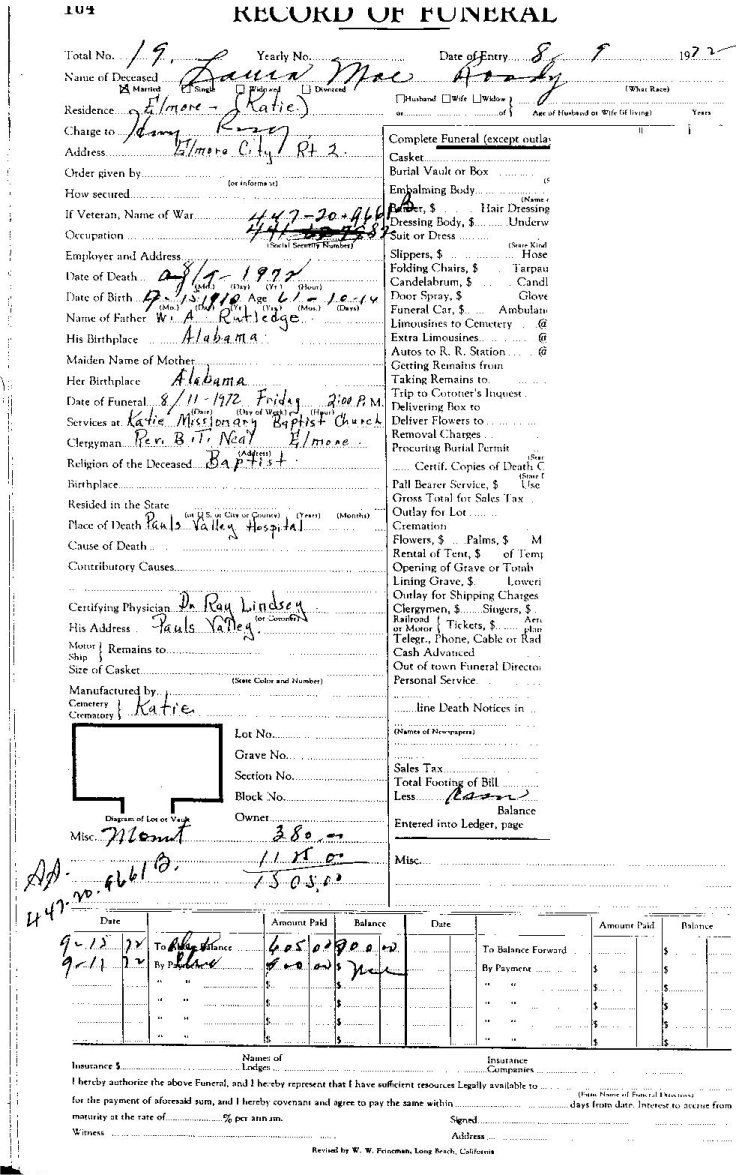 104 RECORD OF FUNERAL
Total No. 19. Yearly No. Date of Entry 8 9 1972
Name of Deceased Laura Mae Roady
Married Single Widowed Divorced (What Race)
Residence Elmore - (Katie) Husband Wife Widow
or of Age of Husband or Wife (if living) Years
Charge to
Address Elmore City Rt 2.
Order given by
(or informant)
How secured
If Veteran, Name of War 447-20-9661 B
Occupation
(Social Security Number)
Employer and Address
Date of Death 8/9-1972
(Mo.) (Day) (Yr.) (Hour)
Date of Birth 9-25-1910 Age 61-10-14
(Mo.) (Day) (Yr.) (Yrs.) (Mos.) (Days)
Name of Father W. A. Rutledge
His Birthplace Alabama
Maiden Name of Mother
Her Birthplace Alabama
Date of Funeral 8/11-1972 Friday 2:00 P.M.
(Date) (Day of Week) (Hour)
Services at Katie Missionary Baptist Church
Clergyman Rev. B.T. Neal Elmore.
(Address)
Religion of the Deceased Baptist
Birthplace
Resided in the State
(or U.S. or City or County) (Years) (Months)
Place of Death Pauls Valley Hospital
Cause of Death
Contributory Causes
Certifying Physician Dr Ray Lindsey
(or Coroner)
His Address Pauls Valley.
Motor Ship Remains to
Size of Casket
(State Color and Number)
Manufactured by
Cemetery Crematory Katie
Lot No.
Grave No.
Section No.
Block No.
Diagram of Lot or Vault Owner
Misc. Momt 380.00
1125 00
1505.00
AA.
447-20-9661 B.
Complete Funeral (except outla
Casket
Burial Vault or Box
Embalming Body
(Name
Barber, $ Hair Dressing
Dressing Body, $ Underw
Suit or Dress
(State Kind
Slippers, $ Hose
Folding Chairs, $ Tarpau
Candelabrum, $ Candl
Door Spray, $ Glove
Funeral Car, $ Ambulan
Limousines to Cemetery @
Extra Limousines @
Autos to R. R. Station @
Getting Remains from
Taking Remains to
Trip to Coroner's Inquest
Delivering Box to
Deliver Flowers to
Removal Charges
Procuring Burial Permit
Certif. Copies of Death C
Pall Bearer Service, $ Use
Gross Total for Sales Tax
Outlay for Lot
Cremation
Flowers, $ Palms, $ M
Rental of Tent, $ of Temp
Opening of Grave or Tomb
Lining Grave, $ Loweri
Outlay for Shipping Charges
Clergymen, $ Singers, $
Railroad or Motor Tickets, $ Aero plane
Telegr., Phone, Cable or Rad
Cash Advanced
Out of town Funeral Director
Personal Service
line Death Notices in
(Names of Newspapers)
Sales Tax
Total Footing of Bill
Less
Balance
Entered into Ledger, page
Misc.
Date Amount Paid Balance Date Amount Paid Balance
9-15 72 To Balance 605 00 900 00 To Balance Forward $
9-11 72 By Payment 900 00 $ By Payment $ $
" " $ $ " " $ $
" " $ $ " " $ $
" " $ $ " " $ $
" " $ $ " " $ $
Insurance $ Names of Lodges Insurance Companies
I hereby authorize the above Funeral, and I hereby represent that I have sufficient resources Legally available to
(Firm Name of Funeral Directors)
for the payment of aforesaid sum, and I hereby covenant and agree to pay the same within days from date. Interest to accrue from
maturity at the rate of % per annum. Signed
Witness Address
Revised by W. W. Feineman, Long Beach, California